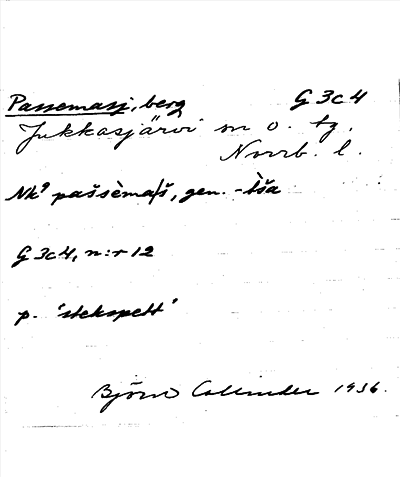 Passemasj, berg G 3c4
Jukkasjärvi sn o. tg.
Norrb. l.
Nk⁹ paššèmaƒš, gen. -tša
G 3c4, n:r 12
p. 'stekspett'
Björn Collinder 1936.